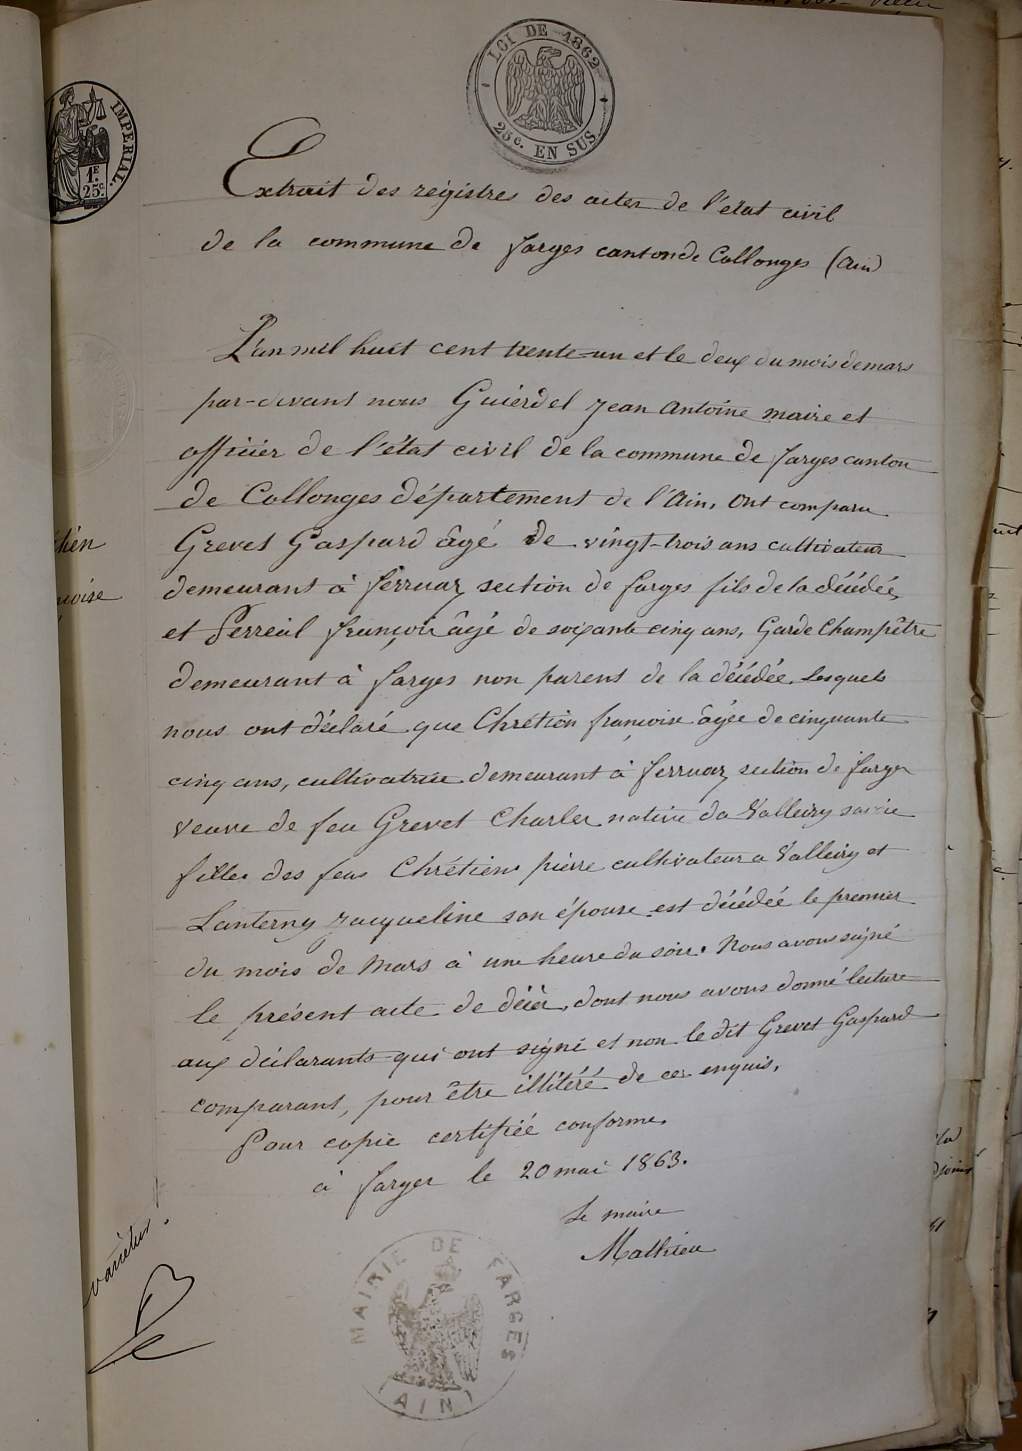 LOI DE 1862
25c. EN SUS.
IMPERIAL.
1F.
25c.
Extrait des régistres des actes de l'état civil
de la commune de farges canton de Collonges (Ain)
L'an mil huit cent trente-un et le deux du mois de mars
par-devant nous Guierdel jean Antoine maire et
officier de l'état civil de la commune de farges canton
de Collonges département de l'Ain, ont comparu
Grevet Gaspard âgé de vingt-trois ans cultivateur
demeurant à ferruaz section de farges fils de la décédée,
et Perreal françois âgé de soixante cinq ans, Garde Champêtre
demeurant à farges non parent de la décédée. Lesquels
nous ont déclaré que Chrétien françoise âgée de cinquante
cinq ans, cultivatrice demeurant à ferruaz section de farges
veuve de feu Grevet Charles native de Valleiry savoie
fille des feus Chrétien pierre cultivateur a Valleiry et
Lanterny jacqueline son épouse est décédée le premier
du mois de Mars à une heure du soir. Nous avons signé
le présent acte de décès, dont nous avons donné lecture
aux déclarants qui ont signé et non le dit Grevet Gaspard
comparant, pour être illitéré de ce enquis.
Pour copie certifiée conforme.
à farges le 20 mai 1863.
Le maire
Mathieu
MAIRIE DE FARGES
(AIN)
varietur